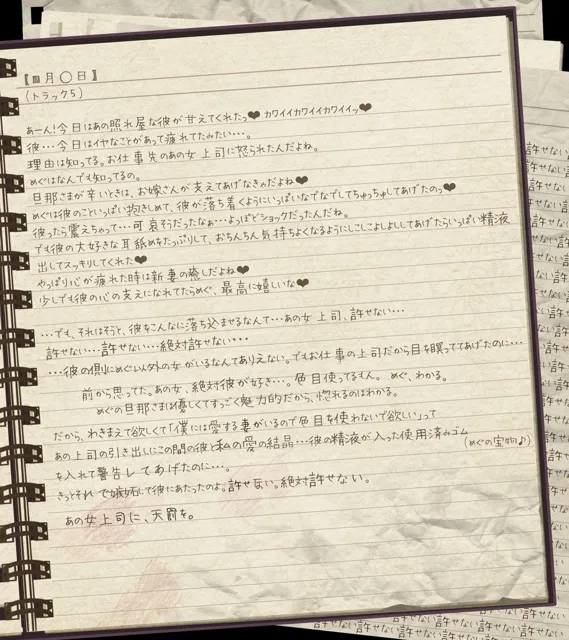 『m月〇日』
(トラック5)
あーん!今日はあの照れ屋な彼が甘えてくれたっ❤カワイイカワイイカワイイッ❤
彼…今日はイヤなことがあって疲れてたみたい…。
理由は知ってる。お仕事先のあの女上司に怒られたんだよね。
めぐはなんでも知ってるの。
旦那さまが辛いときは、お嫁さんが支えてあげなきゃだよね❤
めぐは彼のこといっぱい抱きしめて、彼が落ち着くようにいっぱいなでなでしてちゅっちゅしてあげたのっ❤
彼ったら震えちゃって…可哀そうだったなぁ…よっぽどショックだったんだね。
でも彼の大好きな耳舐めをたっぷりして、おちんちん気持ちよくなるようにしこしこよしよししてあげたらいっぱい精液
出してスッキリしてくれた❤
やっぱり心が疲れた時は新妻の癒しだよね❤
少しでも彼の心の支えになれてたらめぐ、最高に嬉しいな❤
…でも、それはそうと、彼をこんなに落ち込ませるなんて…あの女上司、許せない…
許せない…許せない…絶対許せない…
…彼の側にめぐ以外の女がいるなんてありえない。でもお仕事の上司だから目を瞑っててあげたのに…
前から思ってた。あの女、絶対彼が好き…。色目使ってるもん。めぐ、わかる。
めぐの旦那さまは優しくてすっごく魅力的だから、惚れるのはわかる。
だから、わきまえて欲しくて「僕には愛する妻がいるので色目を使わないで欲しい」って
あの上司の引き出しにこの間の彼と私の愛の結晶…彼の精液が入った使用済みゴム
(めぐの宝物♪)
を入れて警告してあげたのに…。
きっとそれで嫉妬して彼にあたったのよ。許せない。絶対許せない。
あの女上司に、天罰を。